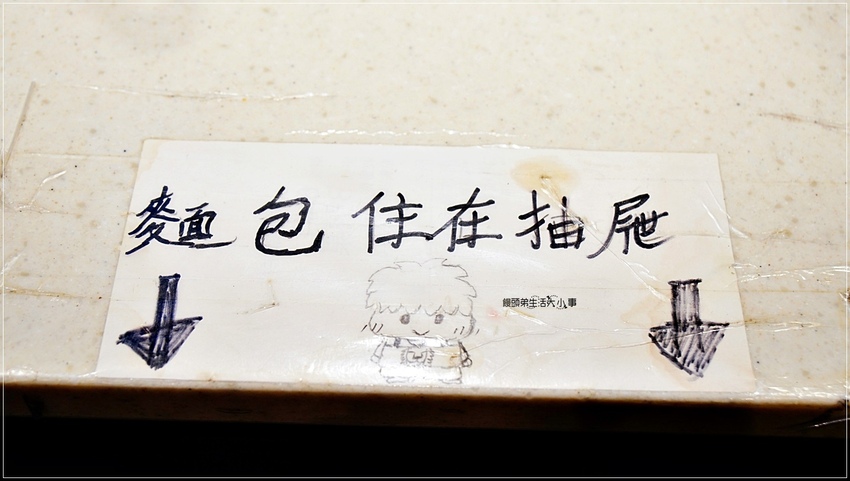 麵包住在抽屜
饅頭弟生活大小事